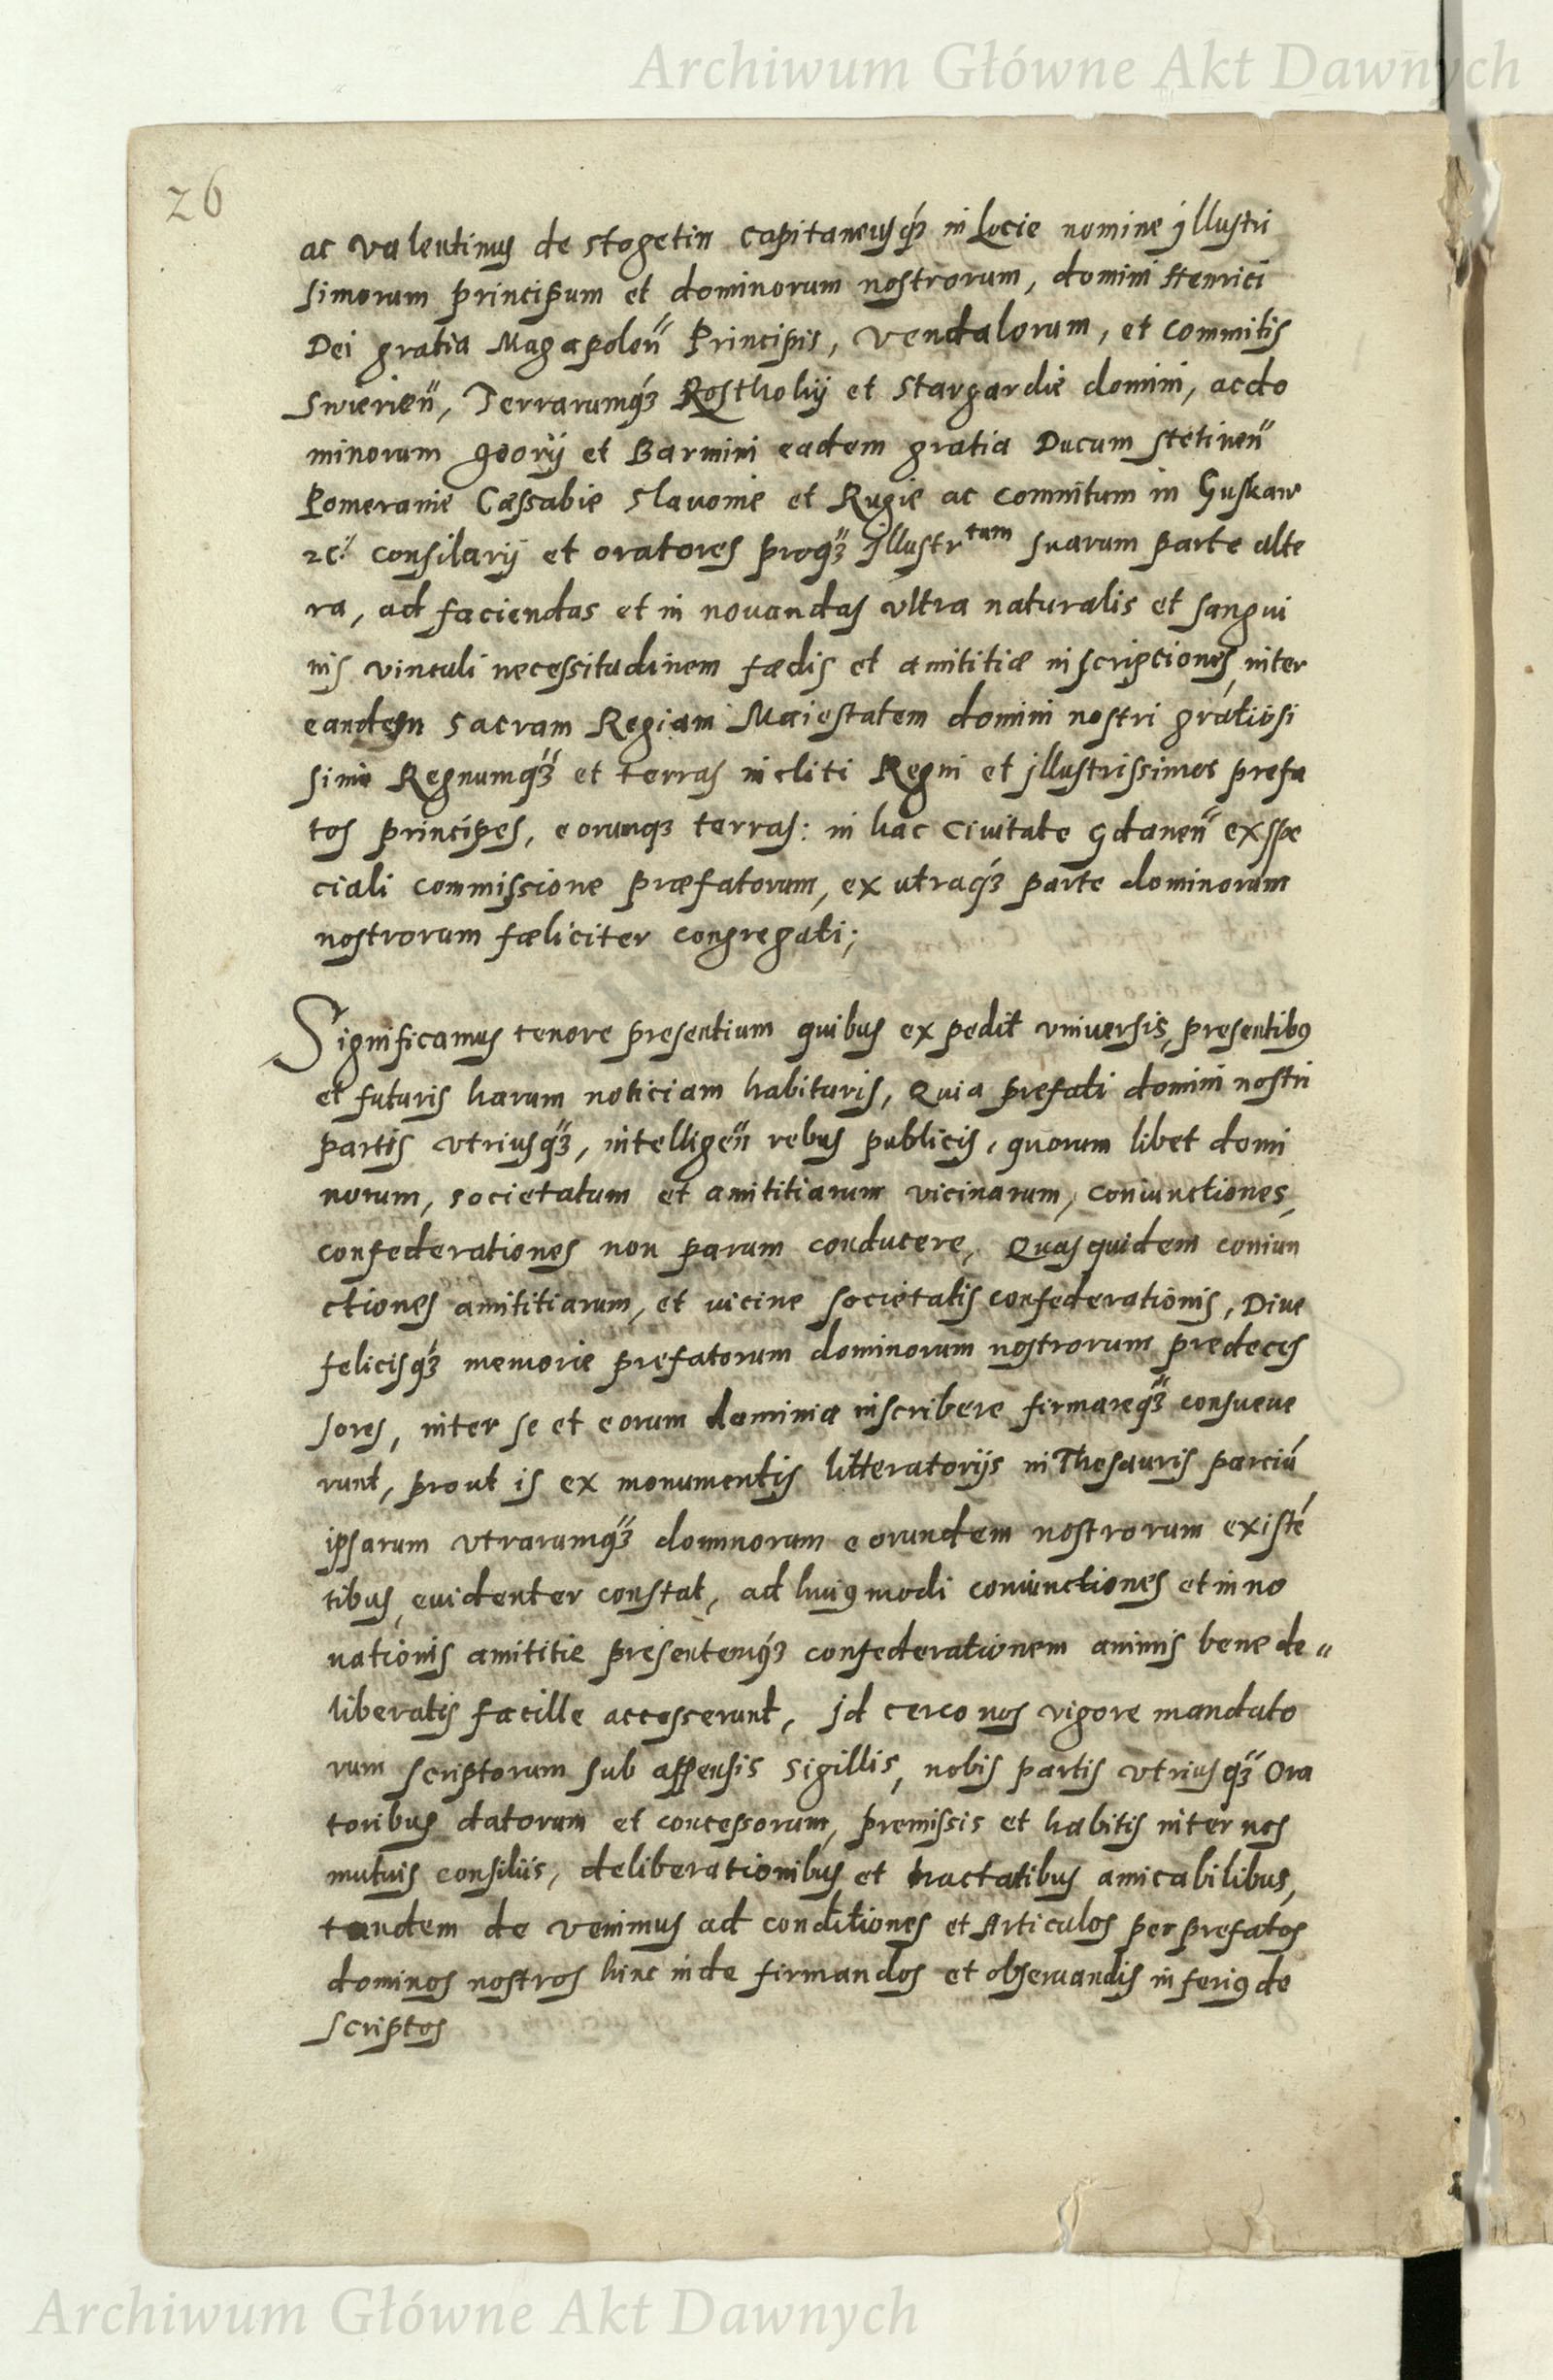 Archiwum Główne Akt Dawnych
26
ac valentinus de stogetin capitaneusq́ꝫ in Locie nomine jllustri
simorum principum et dominorum nostrorum, domini Henrici
Dei gratia Magapoleñ Principis, Vendalorum, et Commitis
Swierieñ, Terrarumq́ꝫ Rostholij et Stargardie domini, acdo
minorum georij et Barnini eadem gratia Ducum stetineñ
Pomeranie Cæssabie Slauonie et Rugie ac comnitum in Guskaw
ꝛc. consilarij et oratores proq́ꝫ jllustrtum suarum parte alte
ra, ad faciendas et in nouandas vltra naturalis et sangui
nis vinculi necessitudinem fædis et amititiæ inscriptiones, inter
eandem sacram Regiam Maiestatem domini nostri gratiosi
simi Regnumq́ꝫ et terras incliti Regni et jllustrissimos prefa
tos principes, eorumqꝫ terras: in hac Ciuitate Gdaneñ exspe
ciali commissione præfatorum, ex utraq́ꝫ parte dominorum
nostrorum fæliciter congregati;
Significamus tenore presentium quibus expedit vniuersis, presentibꝰ
et futuris harum noticiam habituris, Quia prefati domini nostri
partis vtriusq́ꝫ, intelligeñ rebus publicis, quorum libet domi
norum, societatum et amititiarum vicinarum, coniunctiones,
confederationes non parum conducere, Quas quidem coniun
ctiones amititiarum, et uicine societatis confederationis, Diue
felicisq́ꝫ memorie prefatorum dominorum nostrorum predeces
sores, inter se et eorum dominia inscribere firmareq́ꝫ consueue
runt, prout is ex monumentis litteratorijs in Thesauris parciū
ipsarum vtrarumq́ꝫ domnorum eorundem nostrorum existē
tibus, euidenter constat, ad huiꝰmodi coniunctiones et inno
uationis amititie presentemq́ꝫ confederationem animis bene de〃
liberatis facille accesserunt, jd cerco nos vigore mandato
rum scriptorum sub appensis sigillis, nobis partis vtriusq́ꝫ Ora
toribus datorum et concessorum, premissis et habitis inter nos
mutuis consiliis, deliberationibus et tractatibus amicabilibus,
tandem de venimus ad conditiones et Articulos per prefatos
dominos nostros hinc inde firmandos et obseruandis inferiꝰ de
scriptos
Archiwum Główne Akt Dawnych